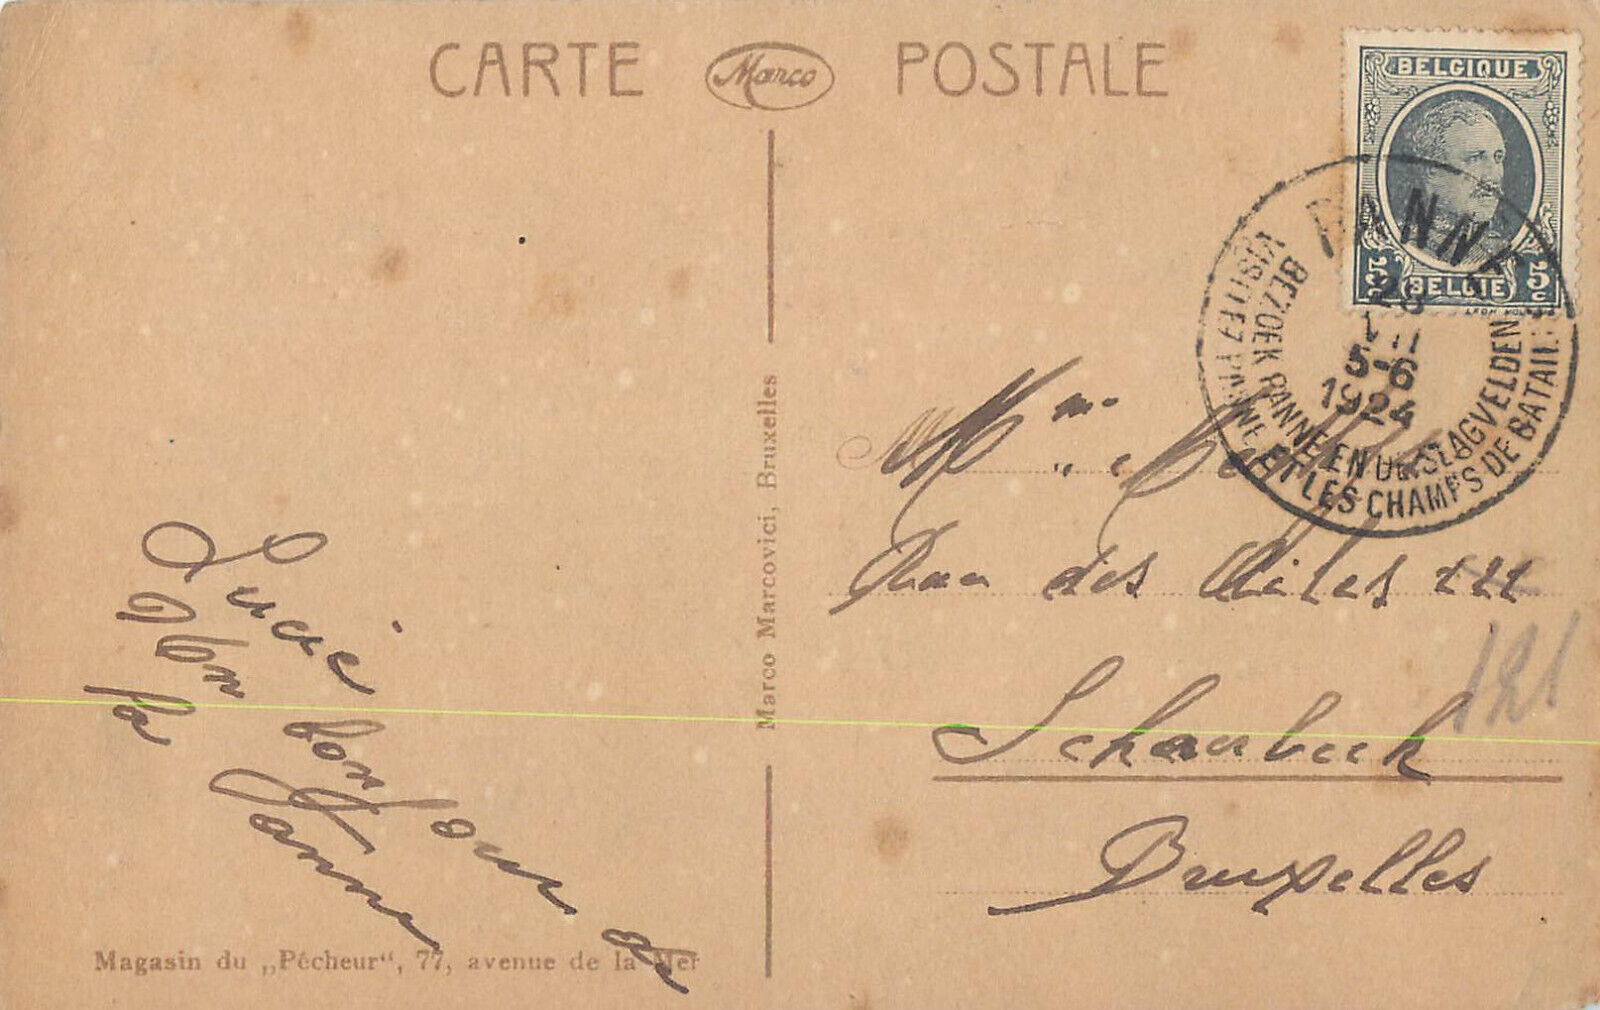 CARTE Marco POSTALE
BELGIQUE
5c 5c
BELGIE
PANNE
28
VII
5-6
1924
BEZOEK PANNE EN DE SLAGVELDEN
VISITEZ PANNE ET LES CHAMPS DE BATAIL
Mme
des Ailes
121
Schaerbeek
Bruxelles
Marco Marcovici, Bruxelles
Lucie
bonjour de
la Panne
Magasin du „Pêcheur“, 77, avenue de la Mer